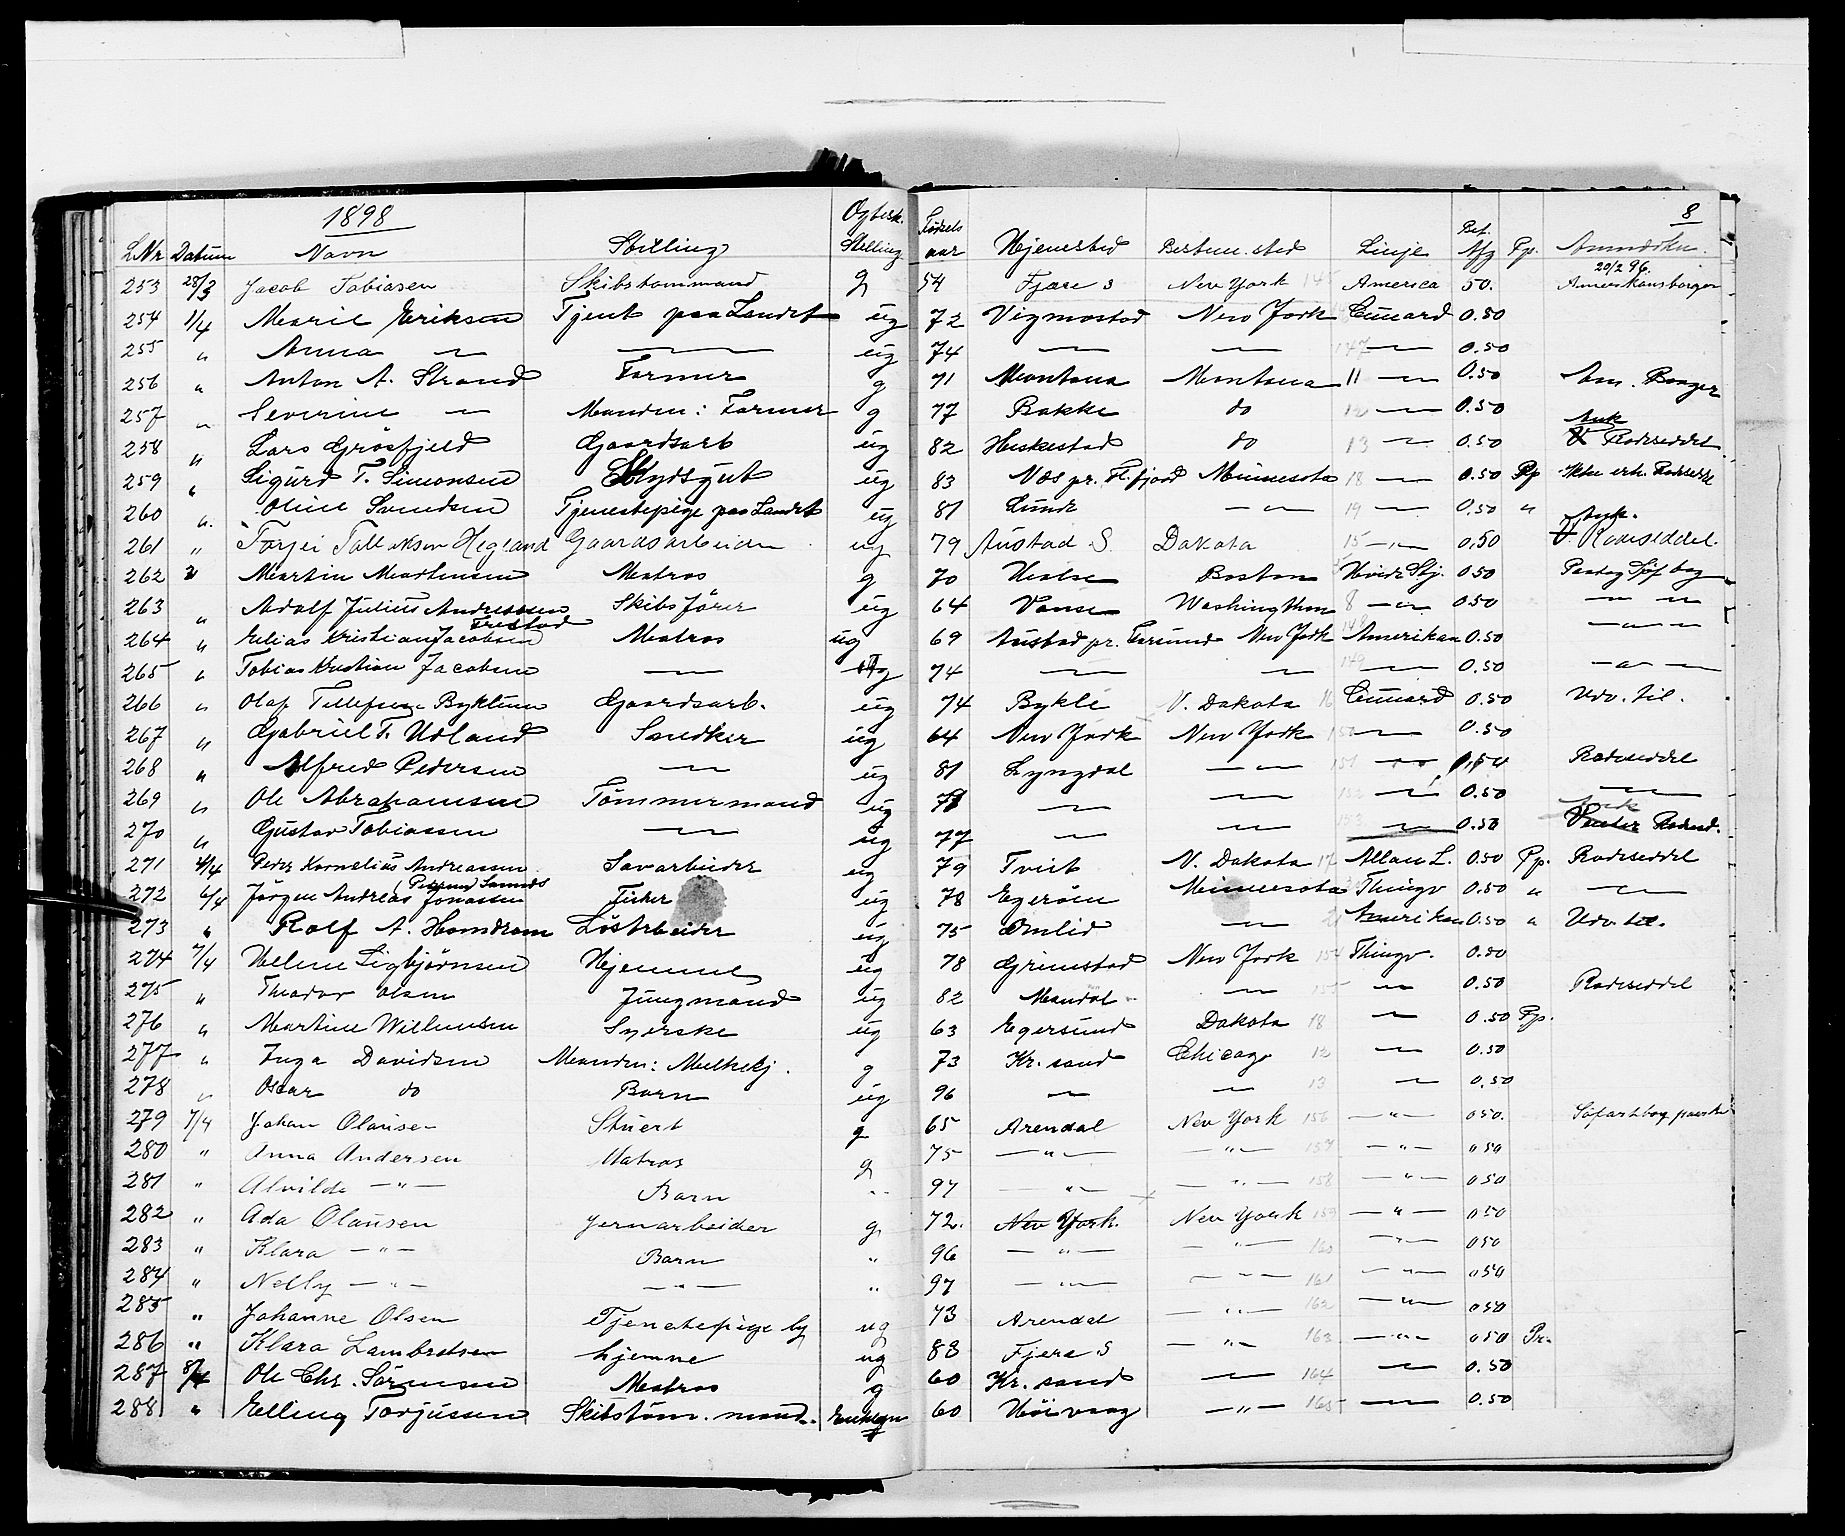 1898 8
L.Nr Datum Navn Stilling Stilling Fødsels aar Hjemsted Bestem. sted Linje Afg Pp.
253 28/3 Jacob Tobiasen Skibstømmand g 54 Fjære S New York America 50. 20/2 96.
254 1/4 Marie Eriksen Tjent paa Landet ug 72 Vigmostad New York Cunard 0.50
255 " Anna — — ug 74 — — 147 — 0.50
256 " Anton A. Strand Farmer g 71 Montana Montana 11 — 0.50 Am. Borger
257 " Severine — Manden: Farmer g 77 Bakke do 12 — 0.50
258 " Lars Grøsfjeld Gaardsarb ug 82 Heskestad do 13 — 0.50 Rodeseddel
259 " Sigurd T. Simonsen ug 83 Næs pr. Fl.fjord Minnesota 18 — 0.50 Pp Ikke erh. Rodsedd
260 " Oline Svendsen Tjenestepige paa Landet ug 81 Lunde — " — 19 — 0.50 "
261 " Torjei Tallaksen Hegland Gaardsarbeider ug 79 Austad S. Dakota 15 — " — 0,50 Rodeseddel.
262 " Martin Martensen Matros g 70 Halse Boston Hvide Stj. 0.50
263 " Adolf Julius Andreassen Skibsfører ug 64 Vanse Washington 8 — " — 0.50 — " —
264 " Elias Kristian Jacobsen Matros ug 69 Austad pr. Farsund New York 148 Amerikan 0.50 — " —
265 " Tobias Kristian Jacobsen — ug 74 — — 149 — 0.50 — " —
266 " Olaf Tellefsen Byklum Gaardsarb. ug 74 Bykle N. Dakota 16 Cunard 0.50 Udv. til.
267 " Gabriel F. Udland Snedker ug 64 New York New York 150 — 0.50
268 " Alfred Pedersen — ug 81 Lyngdal — " — 151 — " — Rodeseddel
269 " Ole Abrahamsen Tømmermand ug — — 152 — 0.50 —
270 " Gustav Tobiassen — ug 77 — — 153 — 0.50
271 4/4 Peder Kornelius Andreassen Savarbeider ug 79 Tveit N. Dakota 17 Allan L. 0.50 Pp. Rodeseddel
272 6/4 Jørgen Andreas Jonassen Fisker ug 78 Egerøen Minnesota Thingv 0.50 " —
273 " Rolf A. Homdrom Løsarbeider ug 75 Omlid — 21 Amerikan 0.50 " Udv. til.
274 7/4 Helene Sigbjørnsen Hjemme ug 78 Grimstad New York 154 Thingv. 0.50
275 " Theodor Olsen Jungmand ug 82 Mandal — 155 — 0.50 Rodeseddel
276 " Martine Willumsen Syerske ug 63 Egersund Dakota 18 — 0.50 Pp.
277 " Inga Davidsen Manden: g 73 Kr. sand Chicago 12 — 0.50
278 " Oscar do Barn ug 96 — — 13 — 0.50
279 7/4 Johan Olausen Stuert g 65 Arendal New York 156 — " — 0 50.
280 " Anna Andersen Matros g 75 — " — — " — 157 — " — 0 50
281 " Alvilde — " — Barn " 97 — " — — " — 158 — " — 0 50
282 " Ada Olausen Jernarbeider g 72. New York. New York 159 — " — 0 50
283 " Klara — " — Barn " 96 — " — — " — 160 — " — 0 50
284 " Nelly — " — — " — " 97 — " — — " — 161 — " — 0 50
285 " Johanne Olsen Tjenestepige by ug 73 Arendal — " — 162 — " — 0 50
286 " Klara Lambretsen hjemme ug 83 Fjære S — " — 163 — " — 0 50 Pr.
287 8/4 Ole Chr. Sørensen Matros g 60 Kr. sand — 164 — 0.50
288 " Elling Torjussen Skibstøm. mand. 60 Høivaag — " — 165 — 0.50